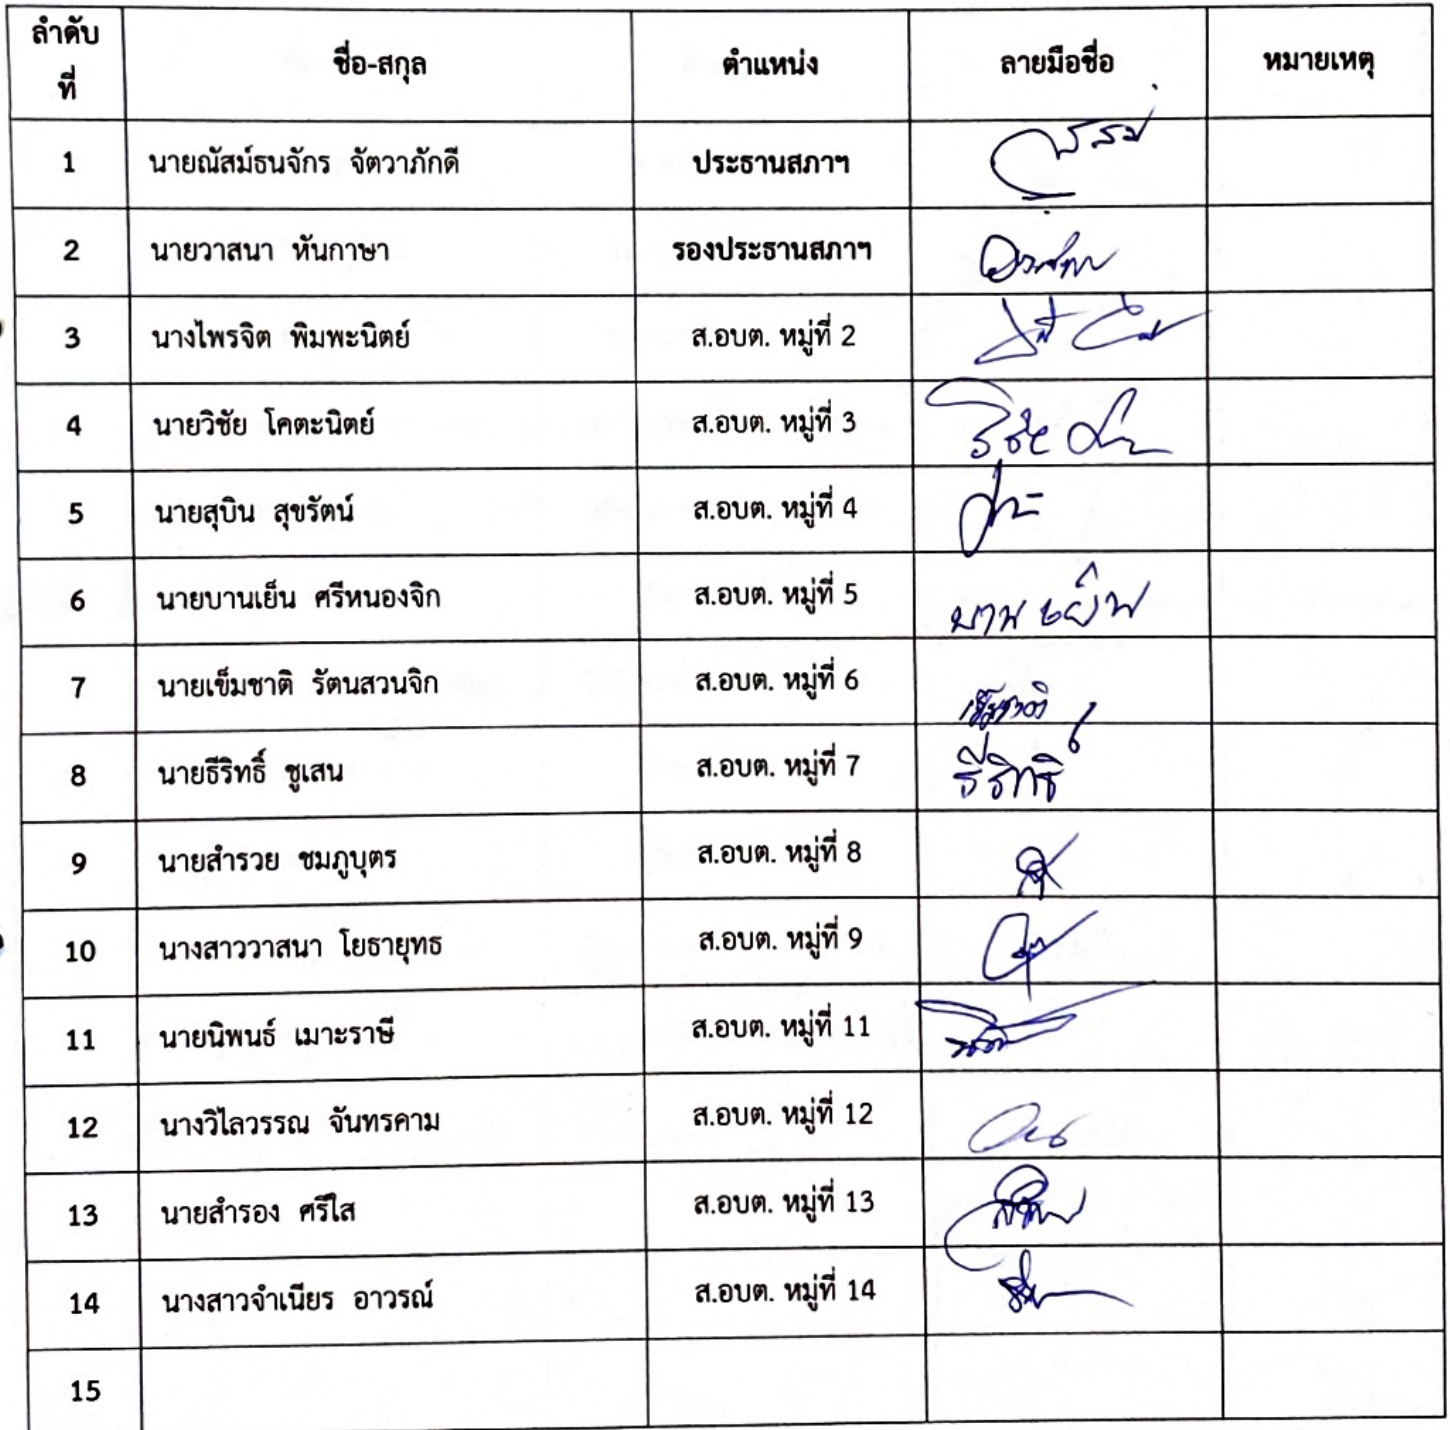 ลำดับ
ที่
ชื่อ-สกุล ตำแหน่ง ลายมือชื่อ หมายเหตุ
1 นายณัสม์ธนจักร จัตวาภักดี ประธานสภาฯ
2 นายวาสนา หันกาษา รองประธานสภาฯ
3 นางไพรจิต พิมพะนิตย์ ส.อบต. หมู่ที่ 2
4 นายวิชัย โคตะนิตย์ ส.อบต. หมู่ที่ 3
5 นายสุบิน สุขรัตน์ ส.อบต. หมู่ที่ 4
6 นายบานเย็น ศรีหนองจิก ส.อบต. หมู่ที่ 5 บานเย็น
7 นายเข็มชาติ รัตนสวนจิก ส.อบต. หมู่ที่ 6
8 นายธีริทธิ์ ชูเสน ส.อบต. หมู่ที่ 7 ธีริทธิ์
9 นายสำรวย ชมภูบุตร ส.อบต. หมู่ที่ 8
10 นางสาววาสนา โยธายุทธ ส.อบต. หมู่ที่ 9
11 นายนิพนธ์ เมาะราษี ส.อบต. หมู่ที่ 11
12 นางวิไลวรรณ จันทรคาม ส.อบต. หมู่ที่ 12
13 นายสำรอง ศรีใส ส.อบต. หมู่ที่ 13
14 นางสาวจำเนียร อาวรณ์ ส.อบต. หมู่ที่ 14
15